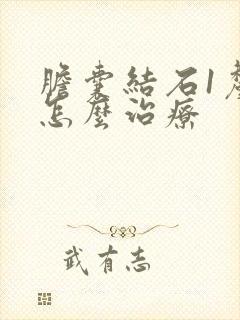 膽囊結石1
怎麼治療
武有志